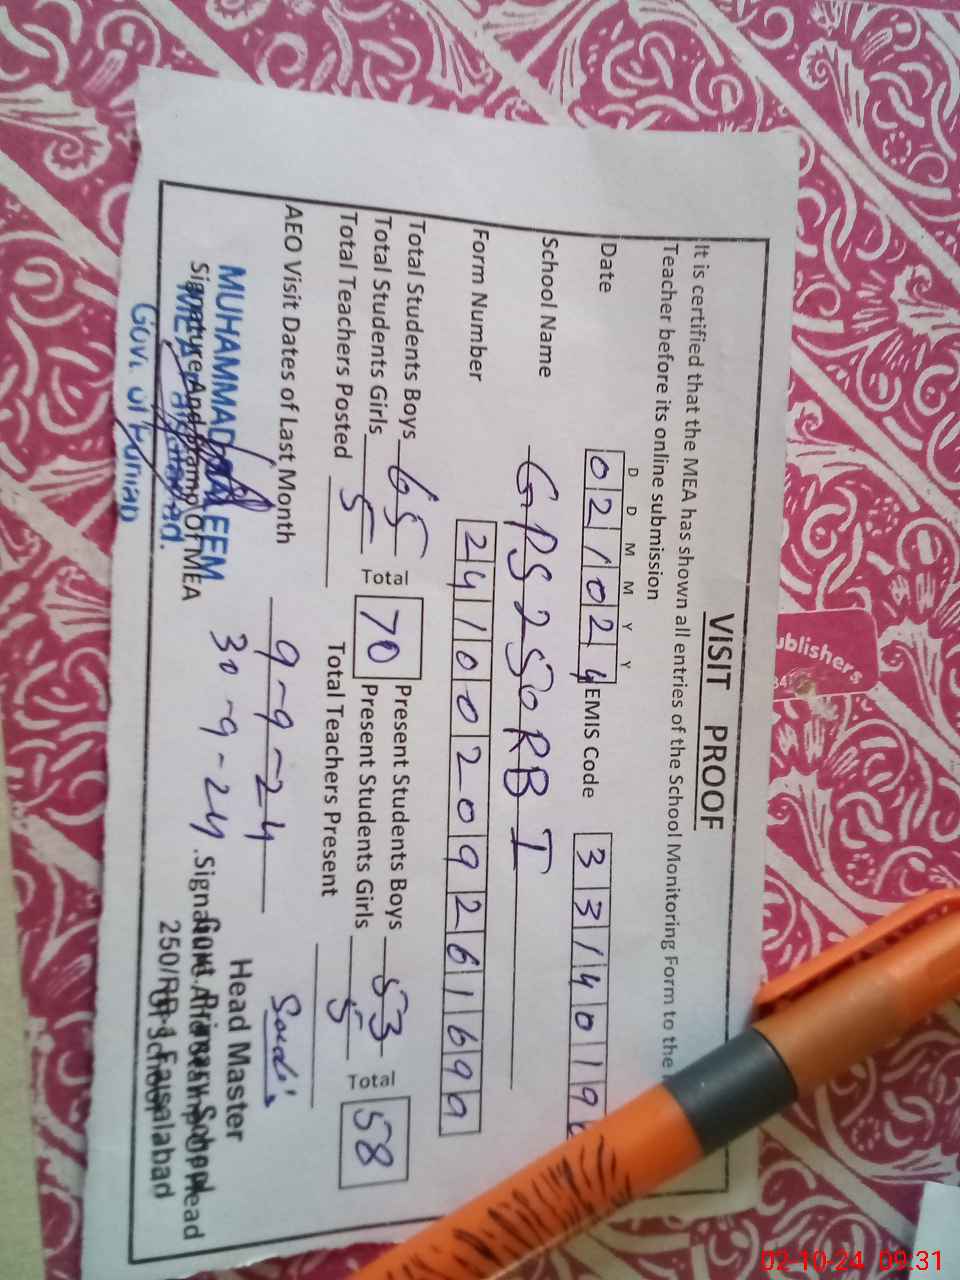 VISIT PROOF
It is certified that the MEA has shown all entries of the School Monitoring Form to the
Teacher before its online submission
D D M M Y Y
Date 021024 EMIS Code 3314019
School Name GPS 250RB I
Form Number 24100209261699
Total Students Boys 65 Total 70 Present Students Boys 53 Total 58
Total Students Girls 5 Present Students Girls 5
Total Teachers Posted Total Teachers Present
AEO Visit Dates of Last Month 9-9-24
30-9-24
MUHAMMAD EEM
Signature And Stamp Of MEA
MEA
Govt. of Punjab
Head Master
Govt. Primary School
250/RB-1 Faisalabad
Of School
ublishers
02-10-24 09:31